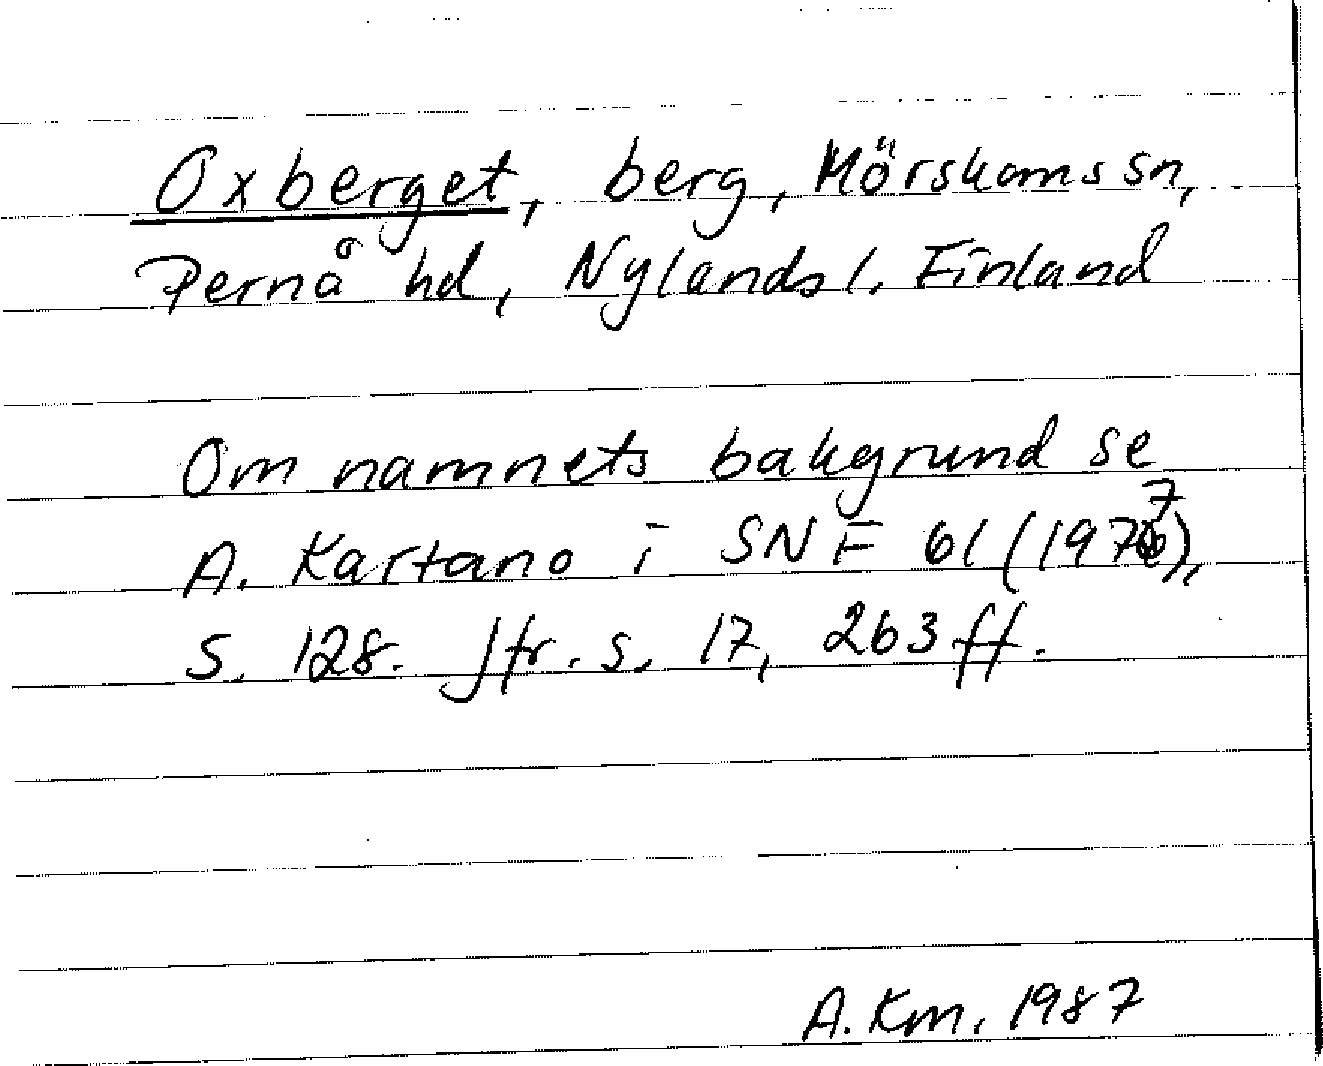 Oxberget, berg, Mörskoms sn,
Pernå hd, Nylands l. Finland
Om namnets bakgrund se
A. Kartano i SNF 61 (1977),
s. 128. Jfr. s. 17, 263 ff.
A. Km. 1987